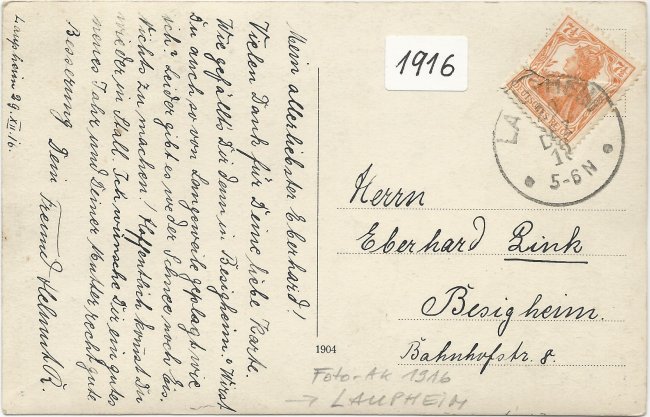 Mein allerliebster Eberhard!
Vielen Dank für Deine liebe Karte.
Wie gefällts Dir denn in Besigheim? Wirst
Du auch so von Langeweile geplagt wie
ich? Leider gibt es weder Schnee noch Eis.
Nichts zu machen! Hoffentlich kommst Du
wieder in Stall. Ich wünsche Dir ein gutes
neues Jahr und Deiner Mutter recht gute
Besserung Dein Freund Helmut R.
Laupheim 29. XII. 16.
1916
7½ 7½
DEUTSCHES REICH
LAUPHEIM
5-6N
Herrn
Eberhard Link
Besigheim.
Bahnhofstr. 8.
1904
Foto-AK 1916
→ LAUPHEIM